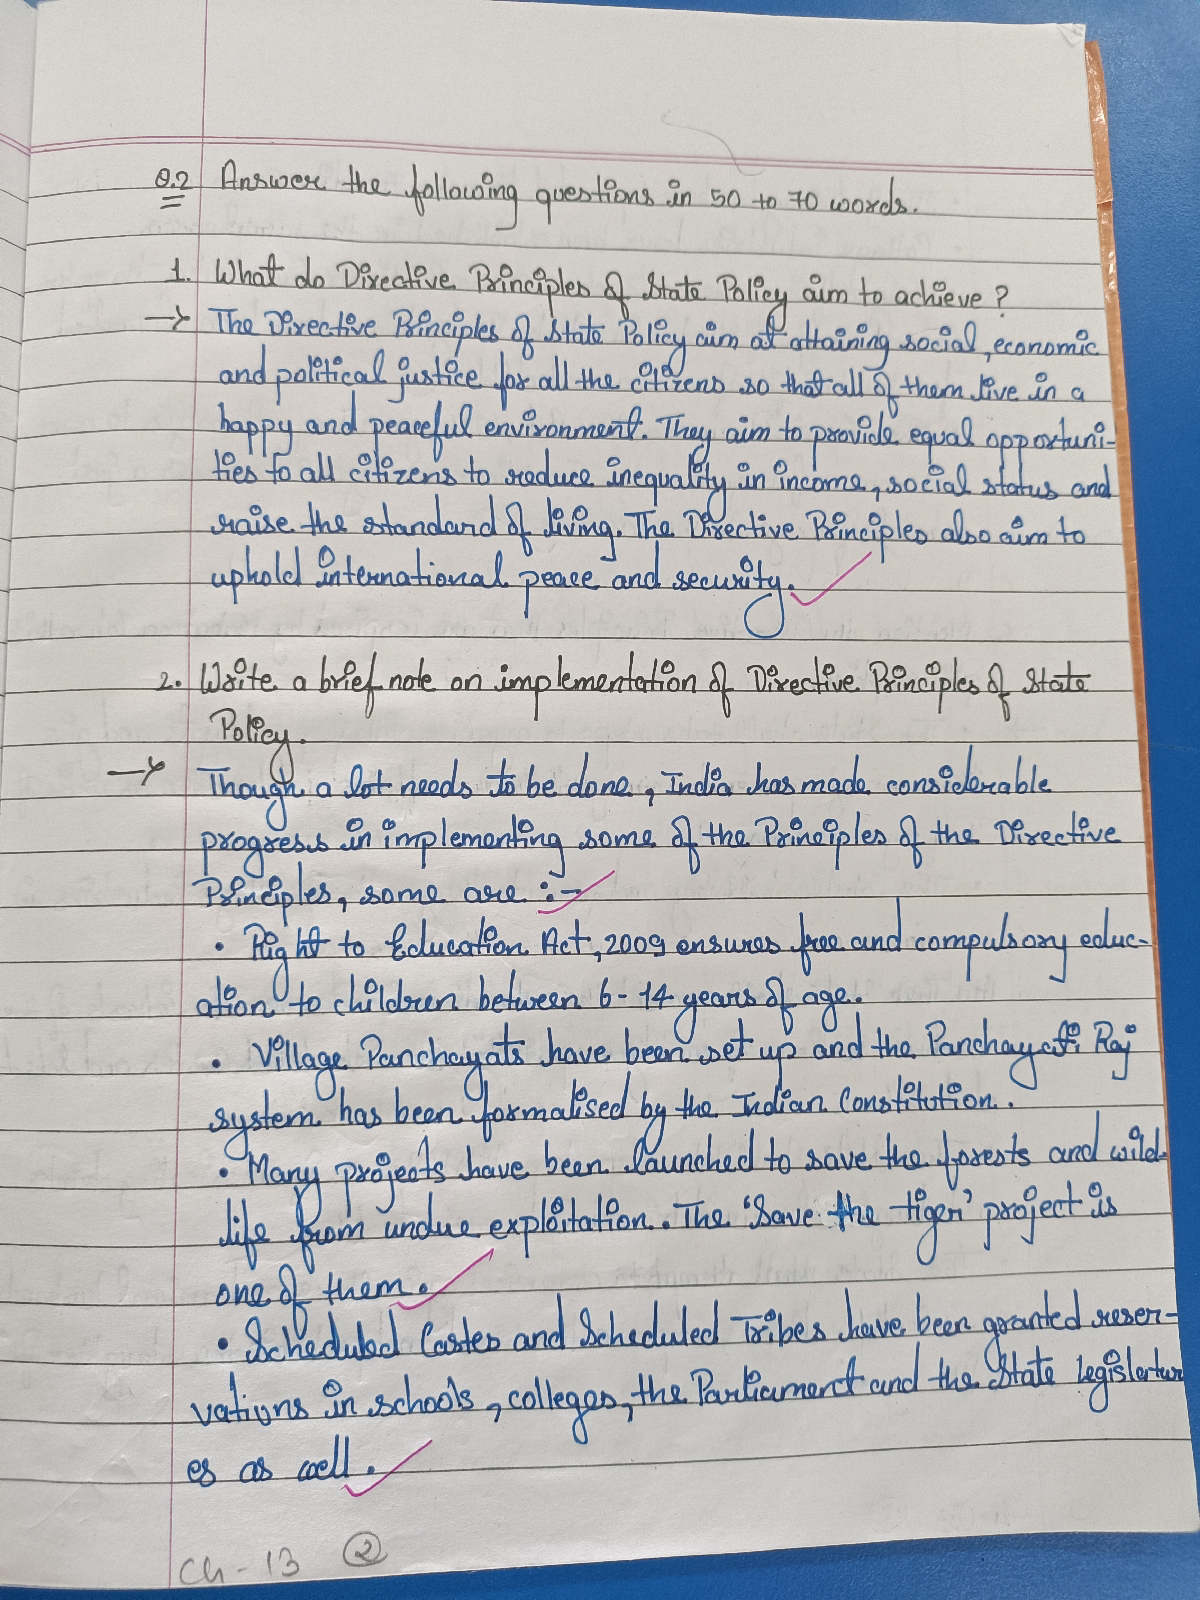 Q.2 Answer the following questions in 50 to 70 words.
1. What do Directive Principles of State Policy aim to achieve?
→ The Directive Principles of State Policy aim at attaining social, economic
and political justice for all the citizens so that all of them live in a
happy and peaceful environment. They aim to provide equal opportuni-
ties to all citizens to reduce inequality in income, social status and
raise the standard of living. The Directive Principles also aim to
uphold international peace and security.
2. Write a brief note on implementation of Directive Principles of State
Policy.
→ Though a lot needs to be done, India has made considerable
progress in implementing some of the Principles of the Directive
Principles, some are :-
• Right to Education Act, 2009 ensures free and compulsory educ-
ation to children between 6-14 years of age.
• Village Panchayats have been set up and the Panchayati Raj
system has been formalised by the Indian Constitution.
• Many projects have been launched to save the forests and wild
life from undue exploitation. The 'Save the tiger' project is
one of them.
• Scheduled Castes and Scheduled Tribes have been granted reser-
vations in schools, colleges, the Parliament and the State legislatur
es as well.
Ch-13 2